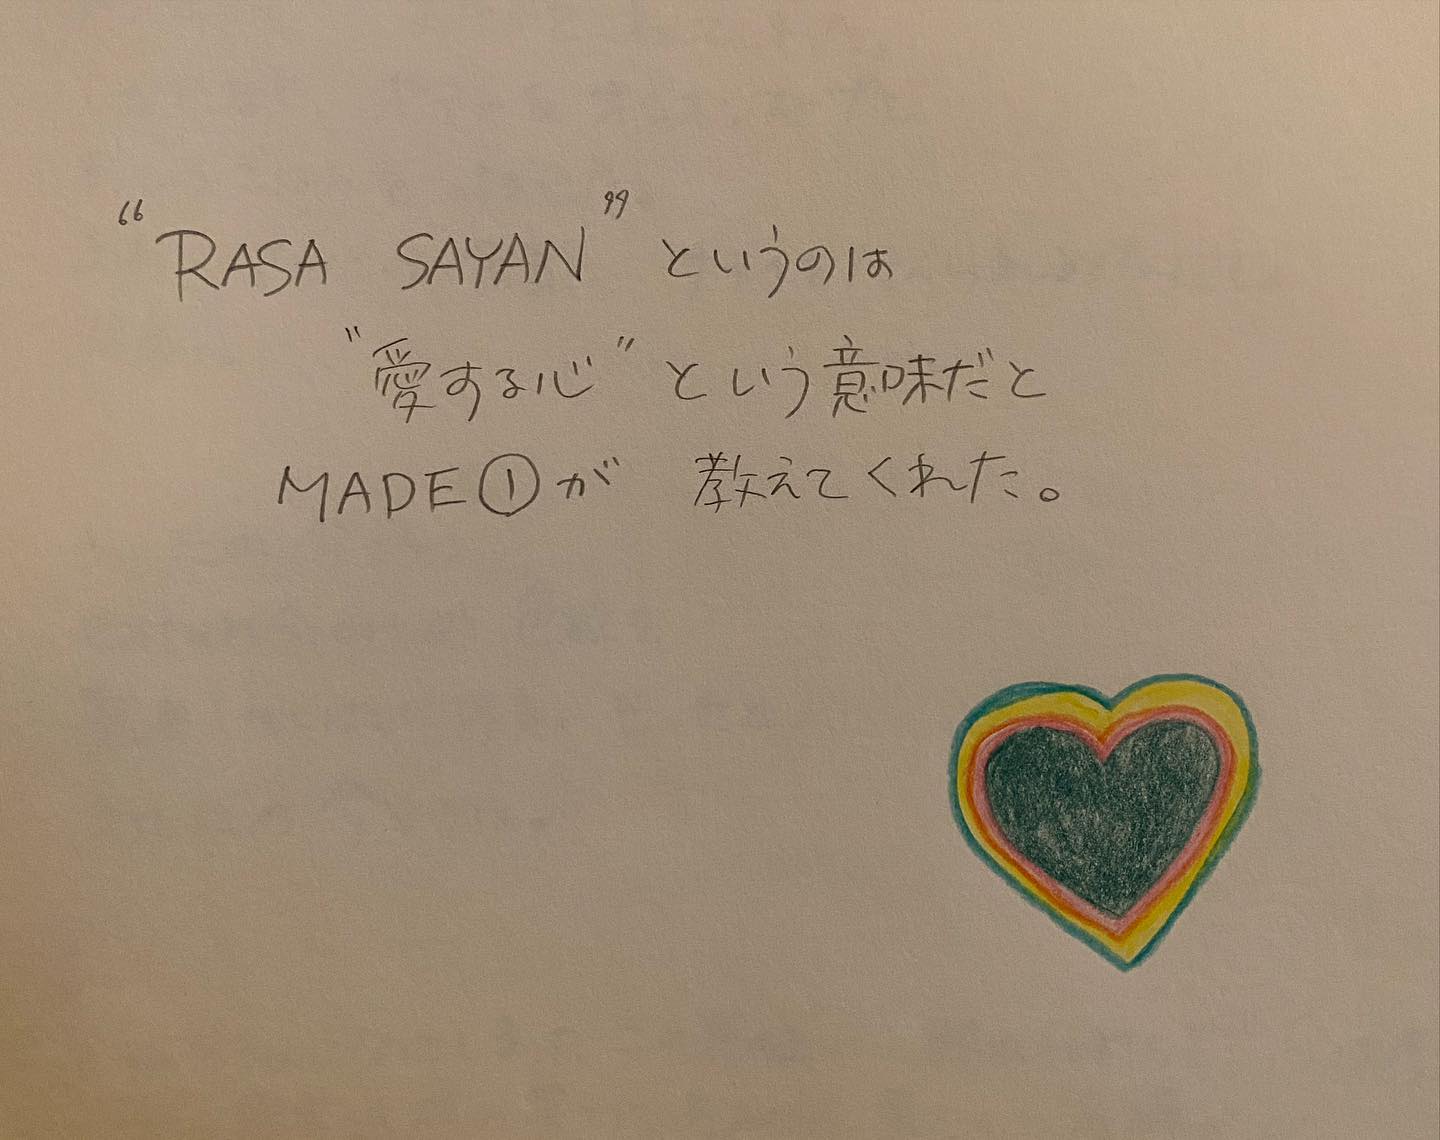 “RASA SAYAN”というのは
“愛する心”という意味だと
MADE①が 教えてくれた。